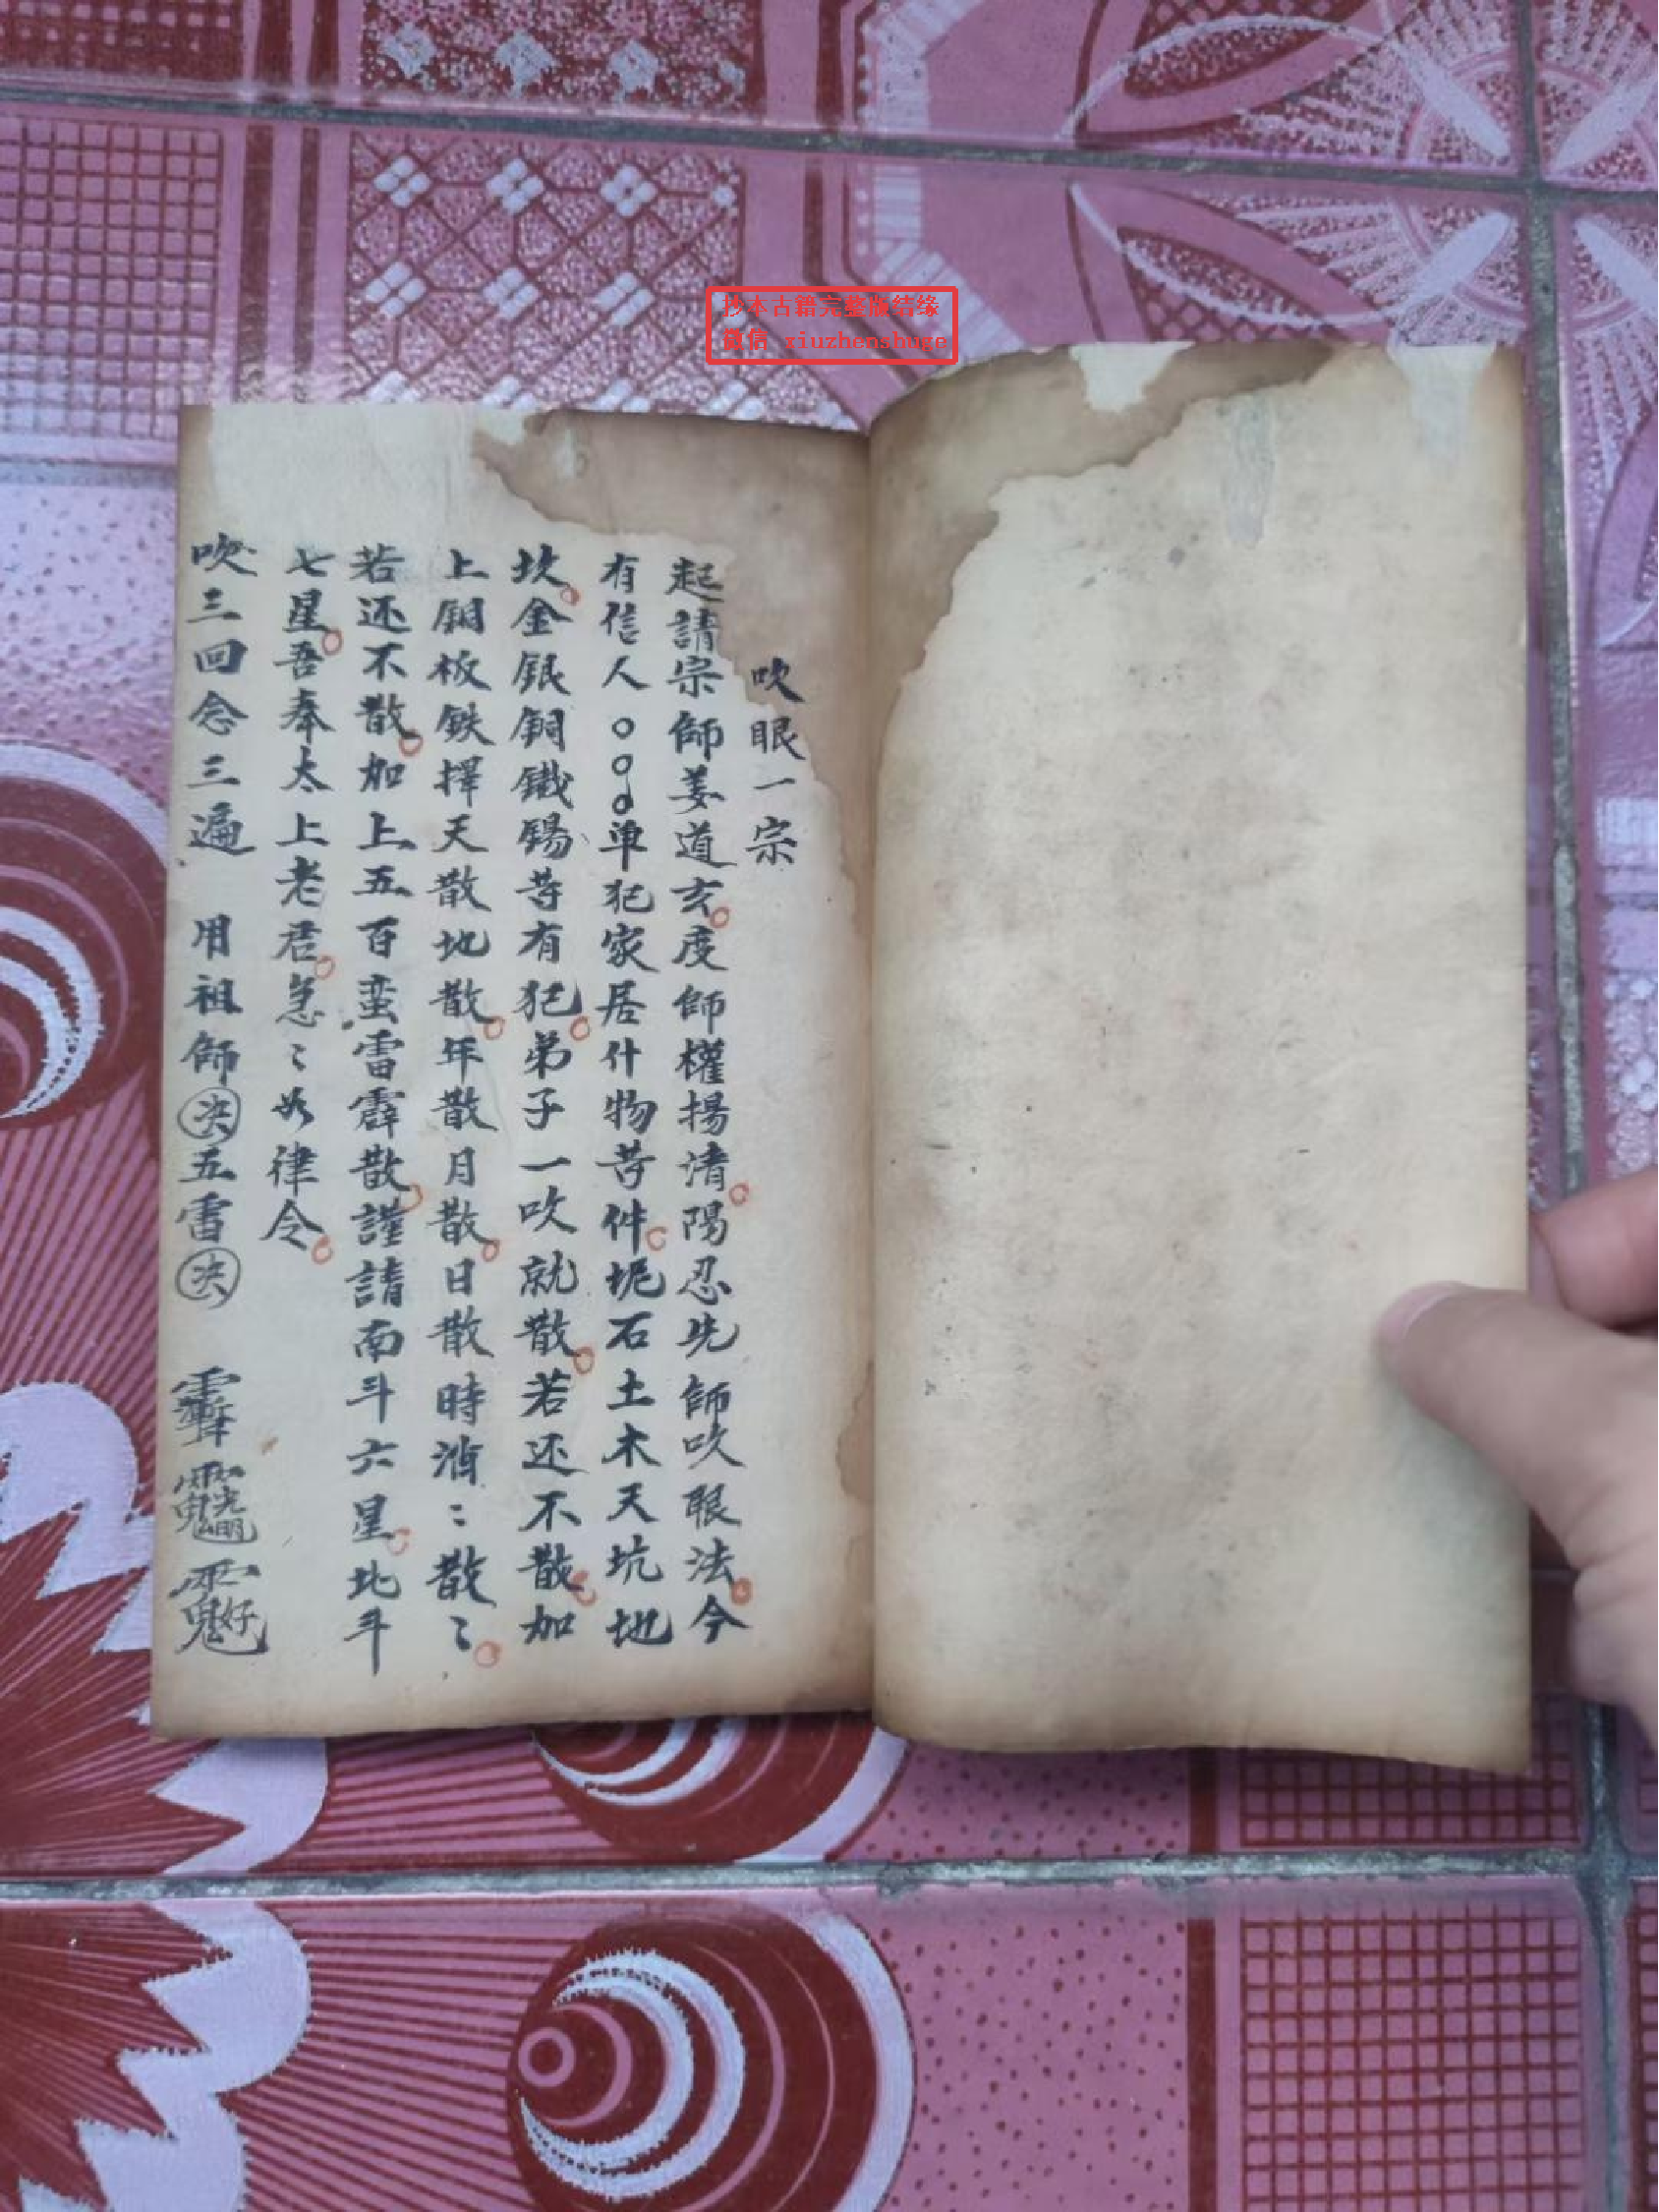 抄本古籍完整版结缘
微信 xiuzhenshuge
吹眼一宗
起請宗師姜道玄。度師權揚清。陽忍先師吹眼法。今
有信人○○○犯家居什物等件。坭石土木天坑地
坎。金銀銅鐵錫等有犯。弟子一吹就散。若还不散。加
上銅板鉄擇天散地散。年散月散。日散時消〻散〻。
若还不散。加上五百蛮雷霹散。謹請南斗六星。北斗
七星。吾奉太上老君。急〻如律令。
吹三回念三遍 用祖師决五雷决